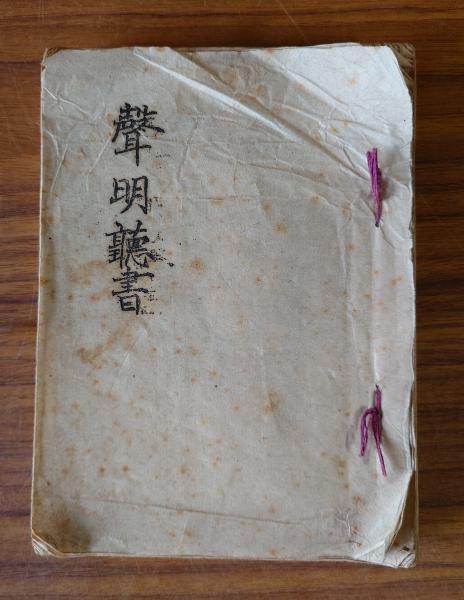 聲明聽書